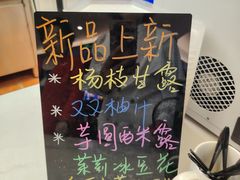 新品上新
* 杨枝甘露
* 双柚汁
* 芋圆西米露
茉莉冰豆花